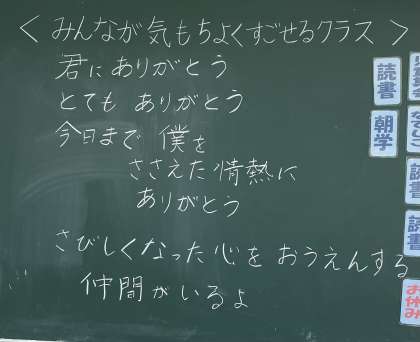 ＜みんなが気もちよくすごせるクラス＞
君にありがとう
とても ありがとう
今日まで 僕を
ささえた情熱に
ありがとう
さびしくなった心を おうえんする
仲間がいるよ
読書
朝学
読書
読書
お休み